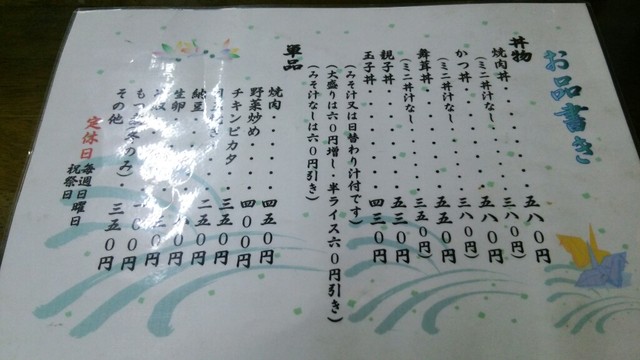 お品書き
丼物
焼肉丼・・・・・・・五八〇円
(ミニ丼汁なし・・・三八〇円)
かつ丼・・・・・・・五八〇円
(ミニ丼汁なし・・・三八〇円)
舞茸丼・・・・・・・五五〇円
(ミニ丼汁なし・・・三五〇円)
親子丼・・・・・・・五三〇円
玉子丼・・・・・・・四三〇円
(みそ汁又は日替わり汁付です)
(大盛りは六〇円増し・半ライス六〇円引き)
(みそ汁なしは六〇円引き)
単品
焼肉・・・・・・・四五〇円
野菜炒め・・・・・四〇〇円
チキンピカタ・・・四〇〇円
三五〇円
納豆・・・二五〇円
生卵
もつ
その他・・三五〇円
定休日
毎週日曜日
祝祭日